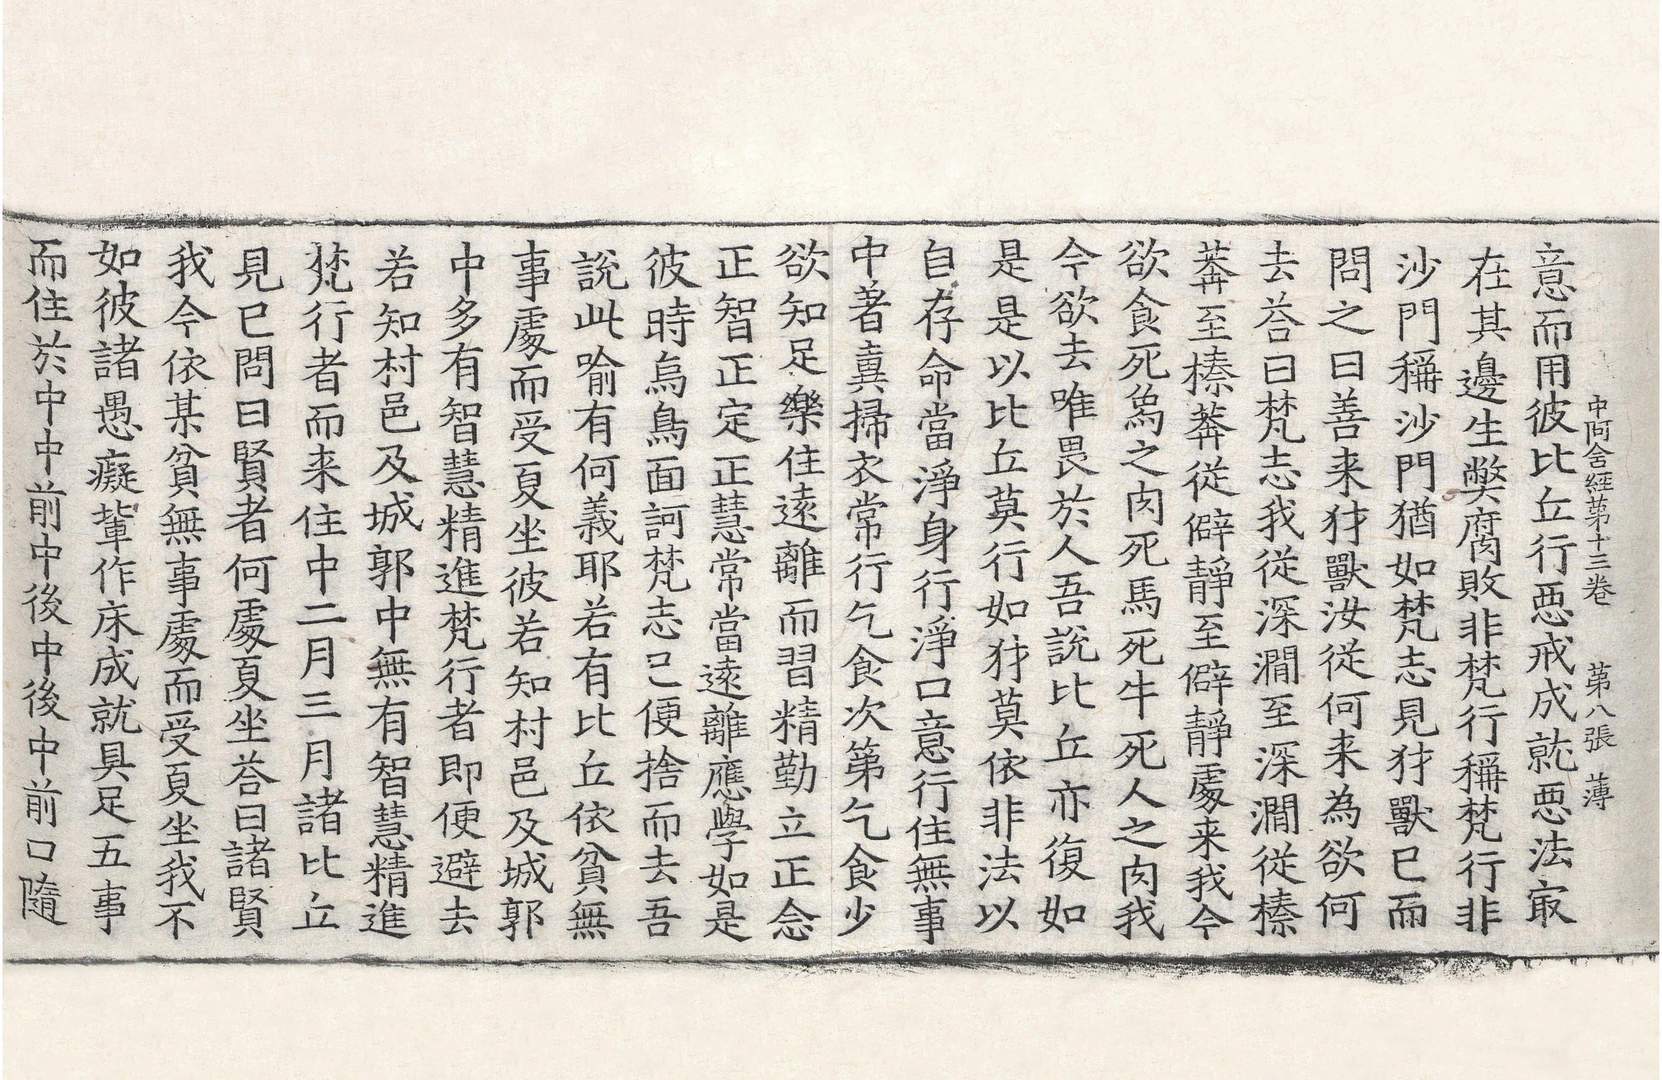 中阿含經第十三卷 第八張 薄
意而用彼比丘行惡戒成就惡法㝡
在其邊生獘腐敗非梵行稱梵行非
沙門稱沙門猶如梵志見犲獸已而
問之曰善来犲獸汝従何来為欲何
去荅曰梵志我従深澗至深澗従榛
莾至榛莾従僻静至僻静處来我今
欲食死烏之肉死馬死牛死人之肉我
今欲去唯畏於人吾說比丘亦復如
是是以比丘莫行如犲莫依非法以
自存命當淨身行淨口意行住無事
中著糞掃衣常行乞食次第乞食少
欲知足樂住遠離而習精勤立正念
正智正定正慧常當遠離應學如是
彼時烏鳥面訶梵志已便捨而去吾
說此喻有何義耶若有比丘依貧無
事處而受夏坐彼若知村邑及城郭
中多有智慧精進梵行者即便避去
若知村邑及城郭中無有智慧精進
梵行者而来住中二月三月諸比丘
見已問曰賢者何處夏坐荅曰諸賢
我今依某貧無事處而受夏坐我不
如彼諸愚癡軰作床成就具足五事
而住於中中前中後中後中前口隨